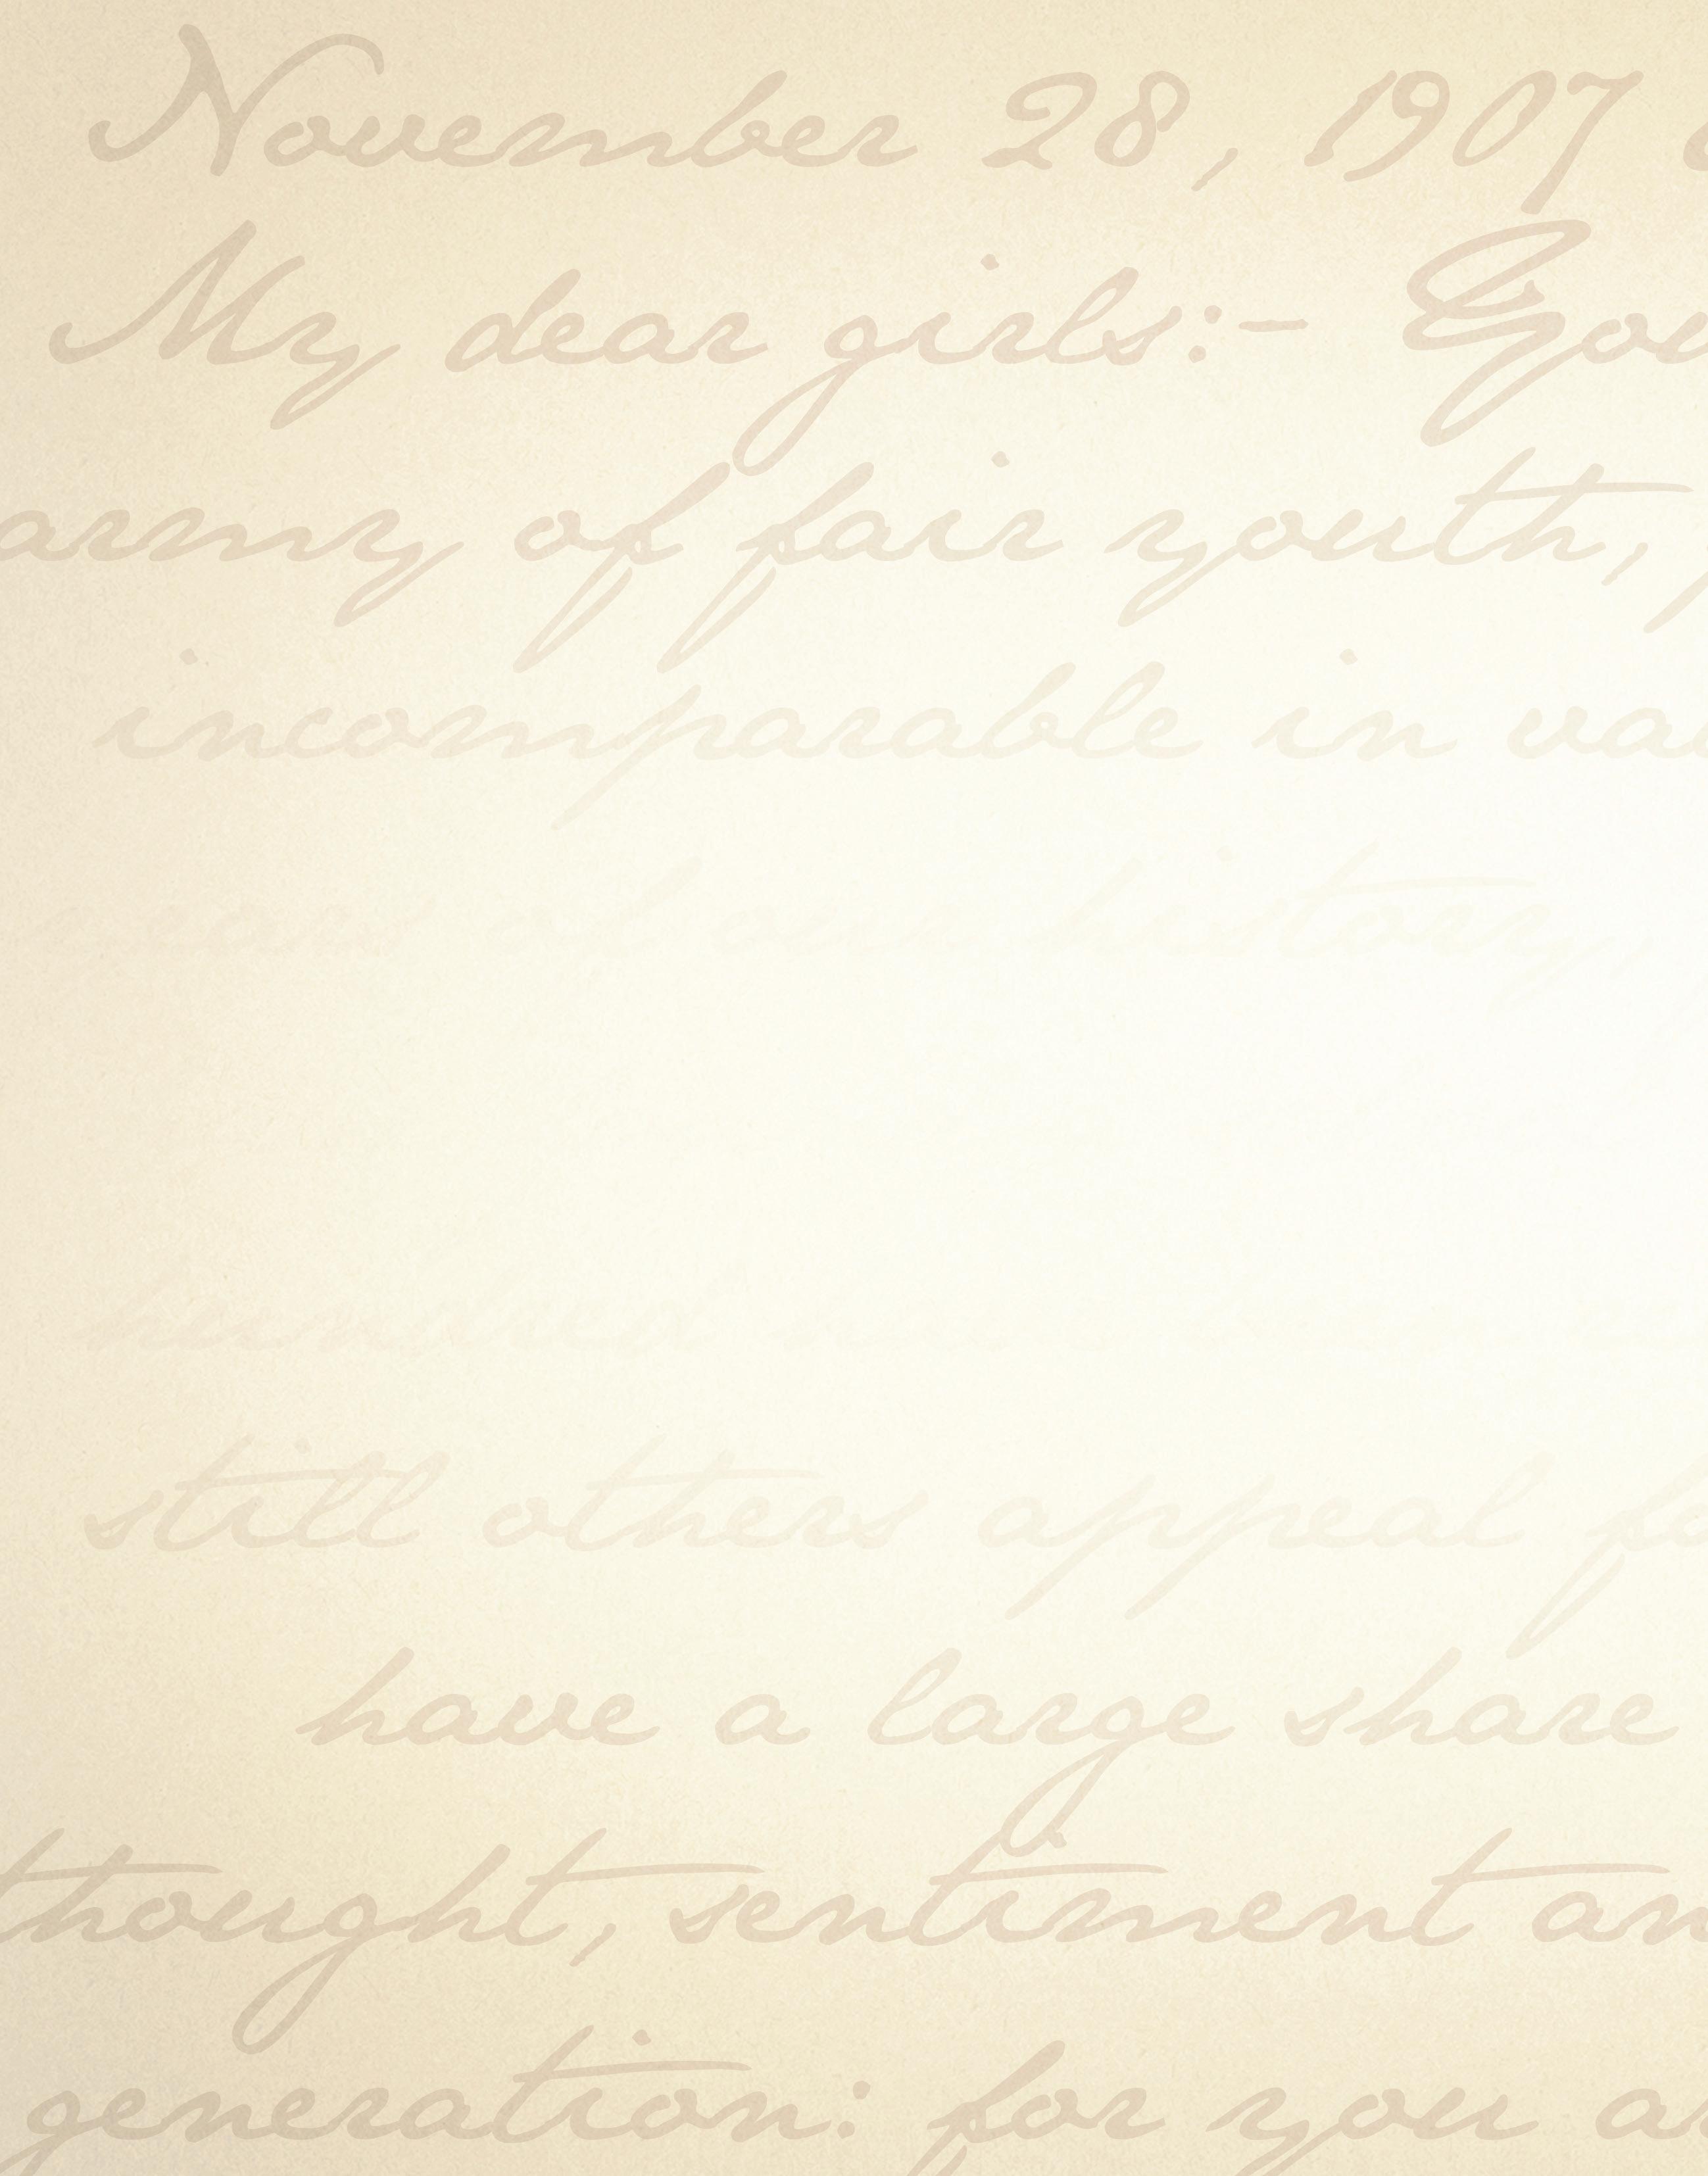 November 28, 1907
My dear girls:-
army of fair youth,
incomparable in
of our history,
still others appeal
have a large share
thought, sentiment
generation: for you